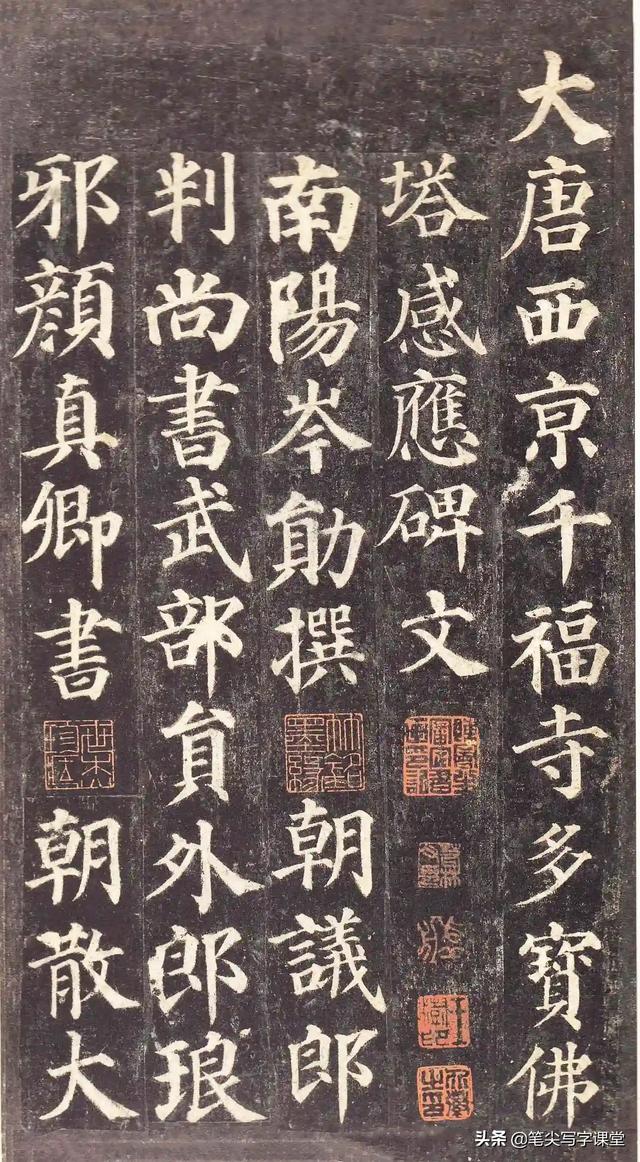 大唐西亰千福寺多寶佛
塔感應碑文
南陽岑勛撰 朝議郎
判尚書武部貟外郎琅
邪顏真卿書 朝散大
头条 @笔尖写字课堂